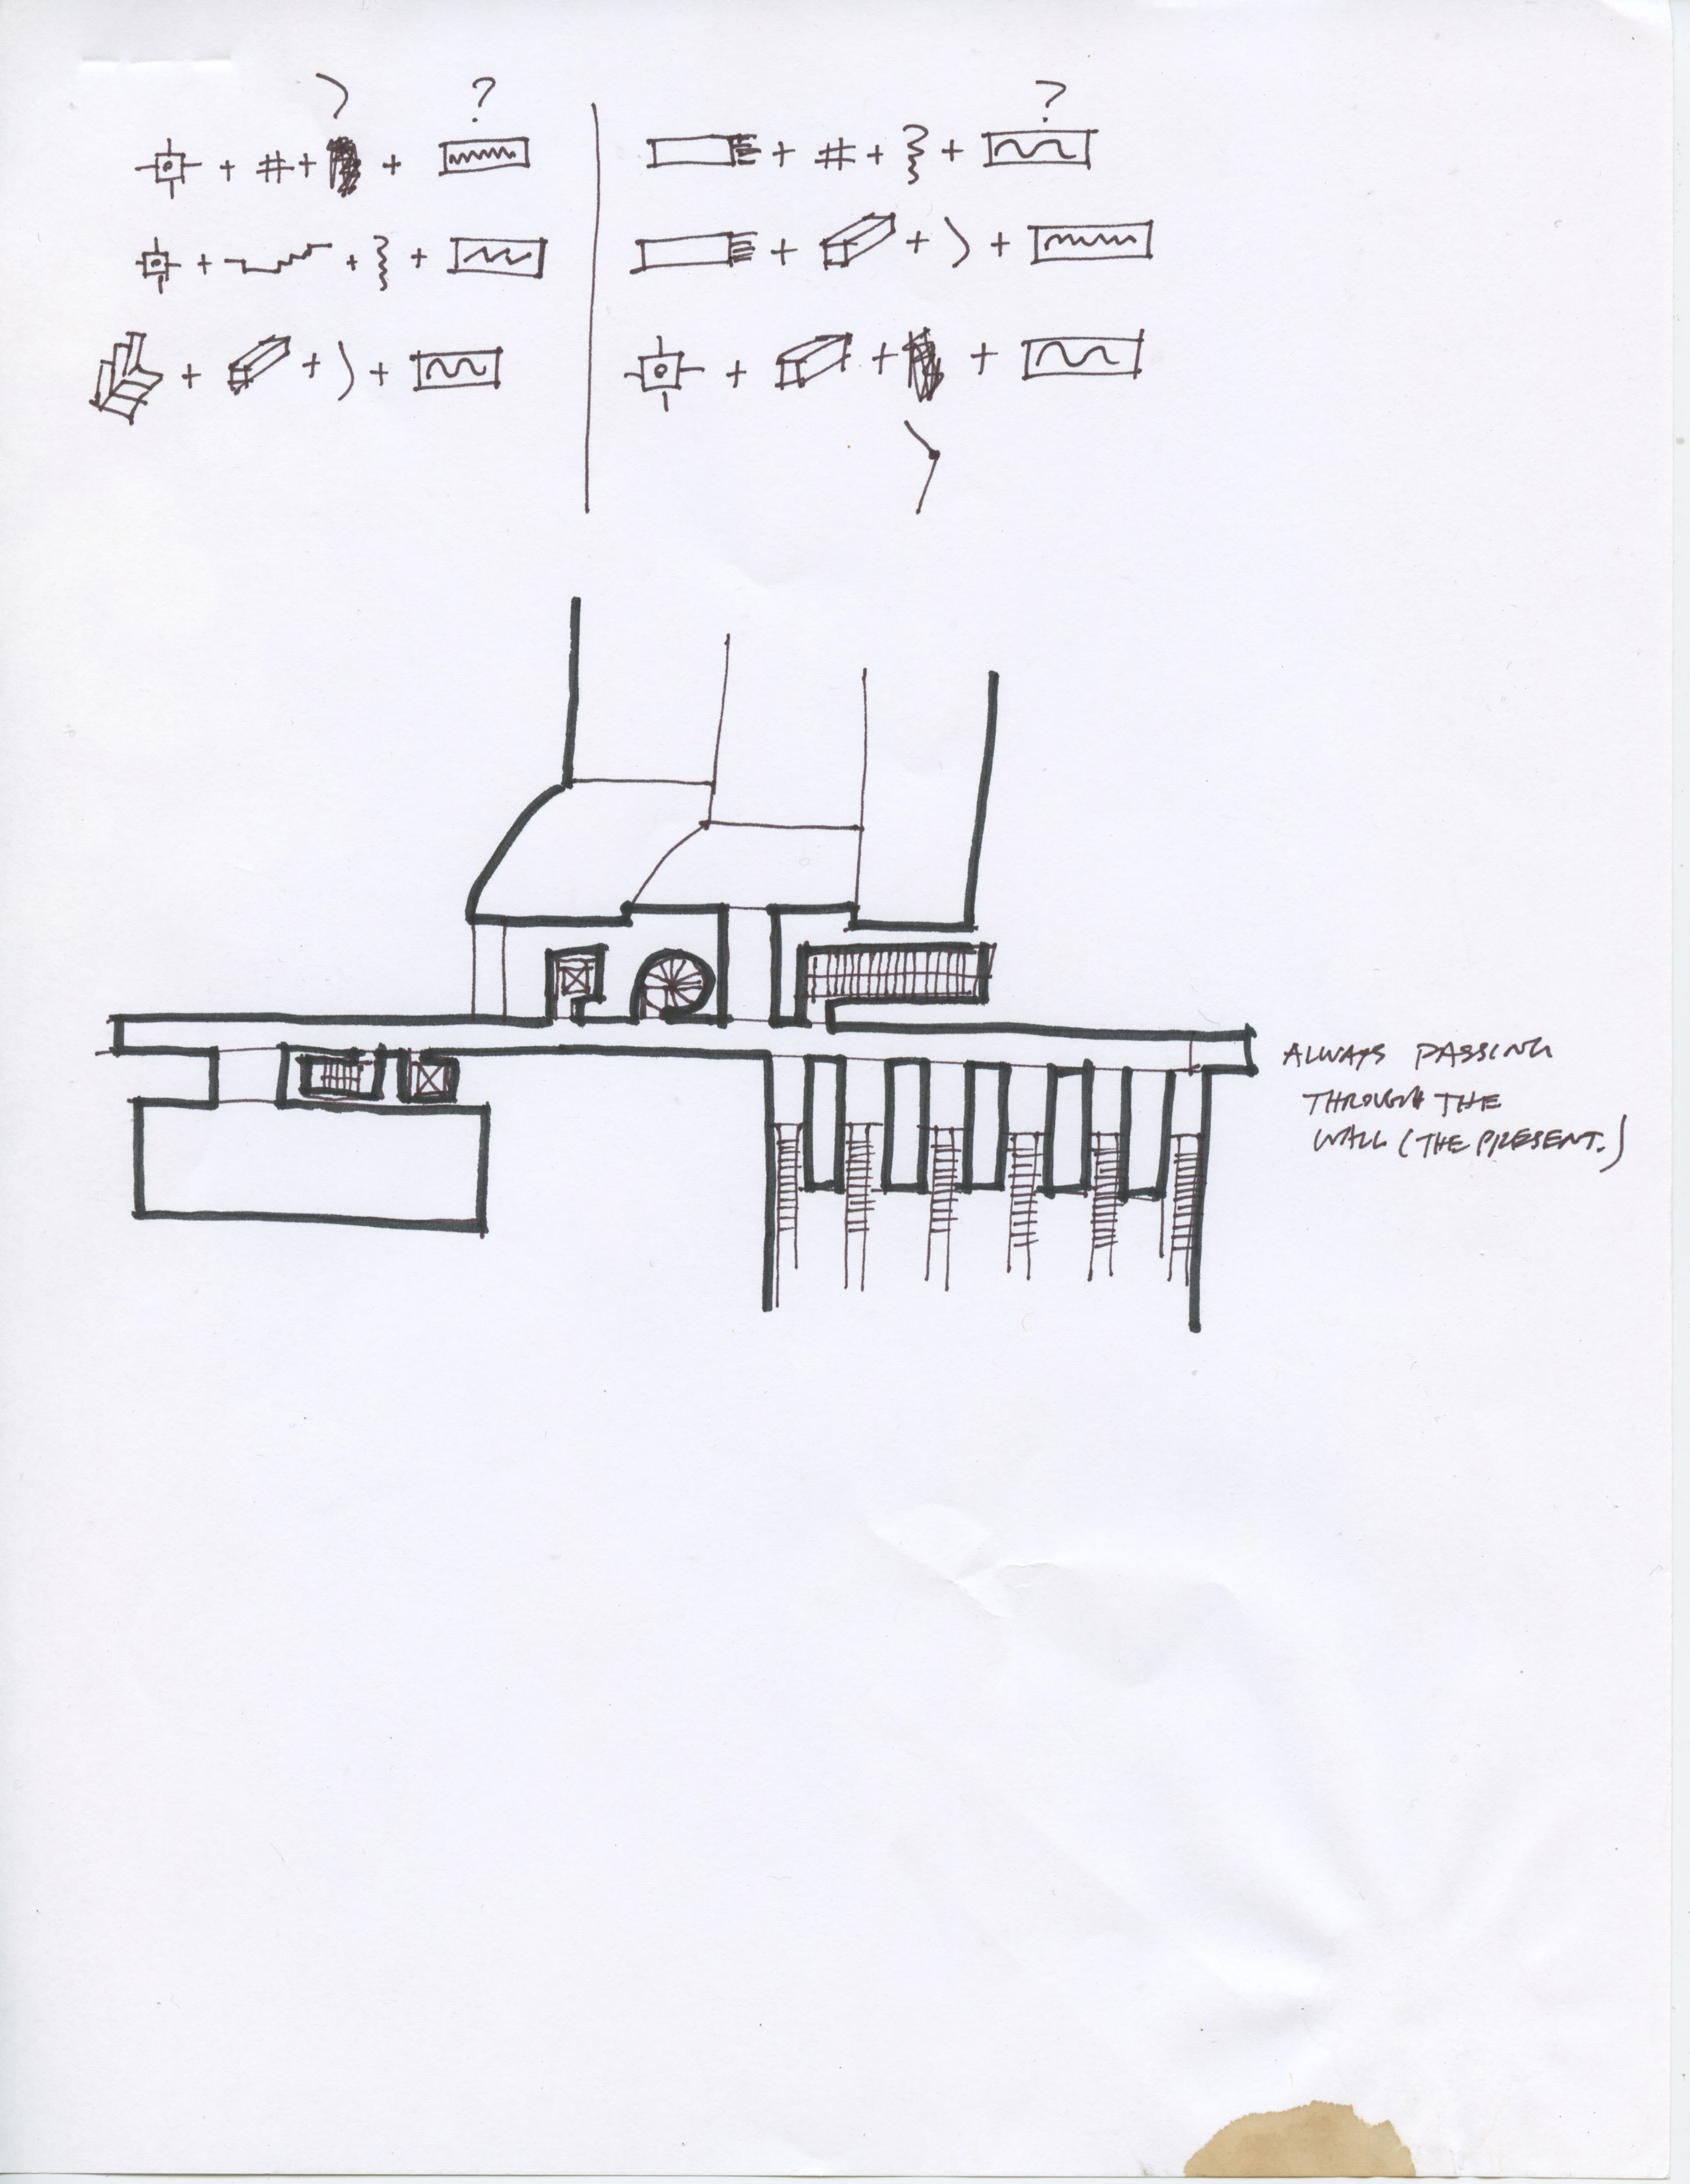 ?
?
?
ALWAYS PASSING
THROUGH THE
WALL (THE PRESENT.)